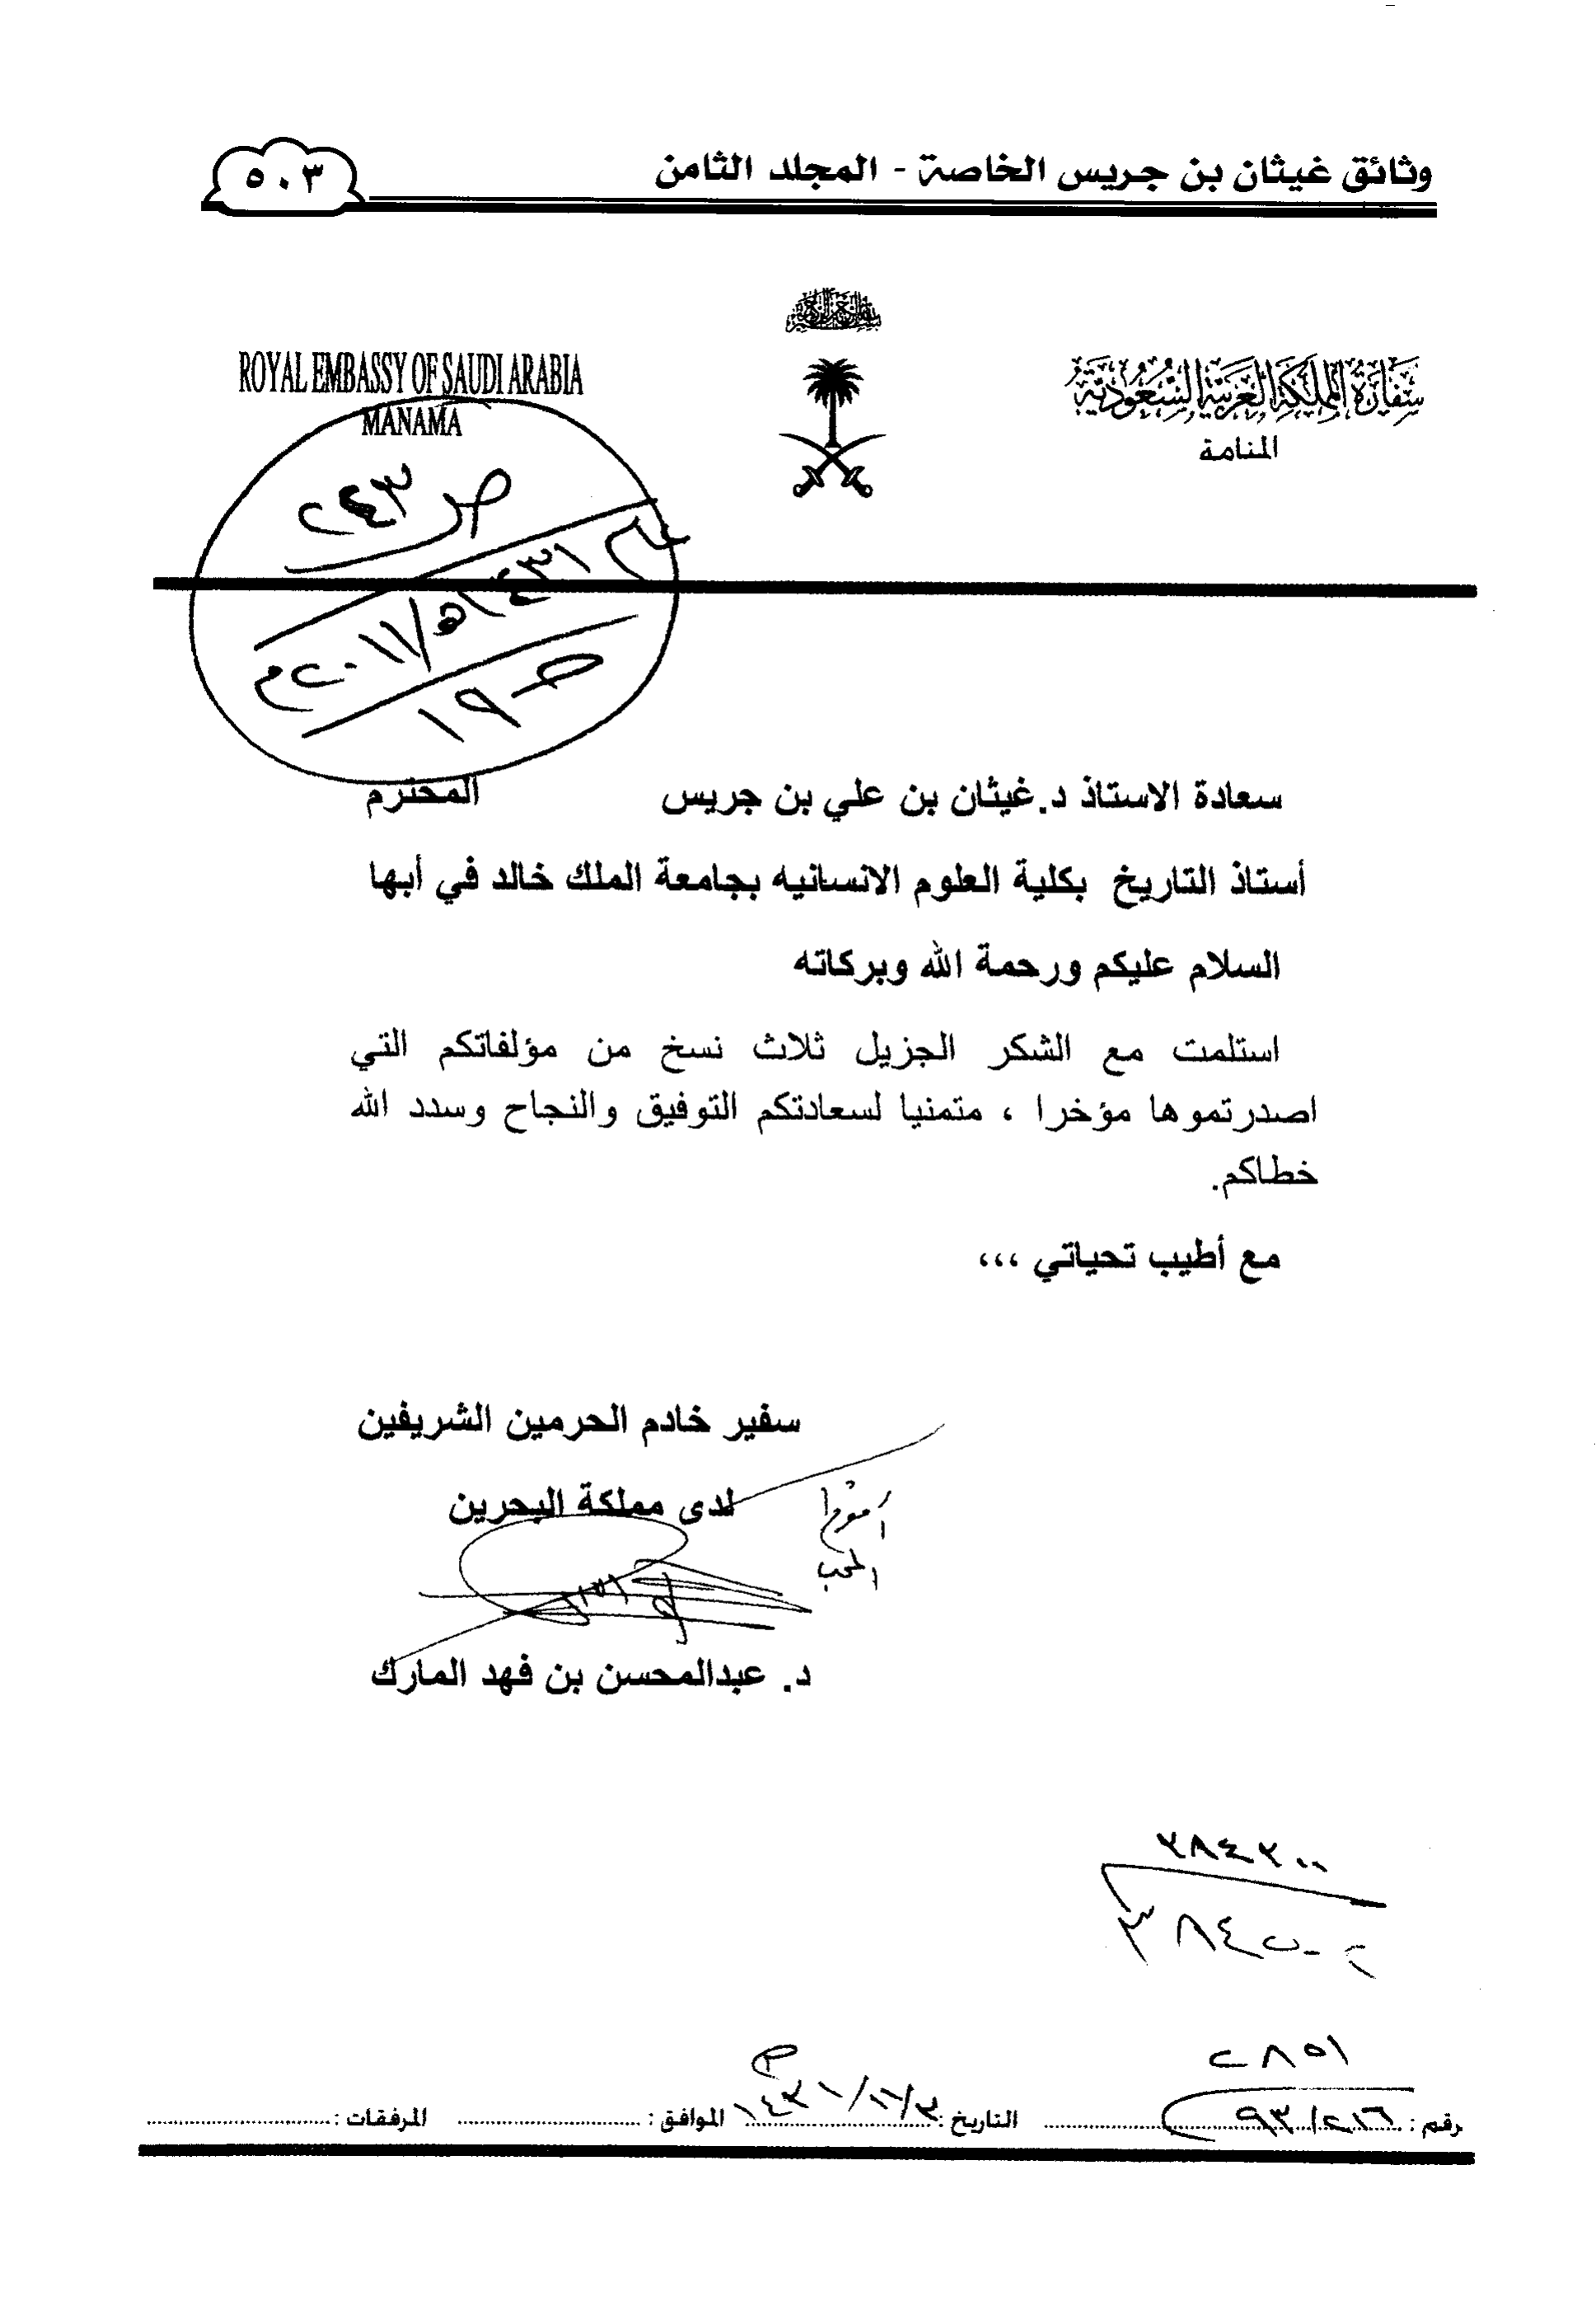 وثائق غيثان بن جريس الخاصة - المجلد الثامن
٥٠٣
سفارة المملكة العربية السعودية
المنامة
ROYAL EMBASSY OF SAUDI ARABIA
MANAMA
ص ٢٤٣
١٤٣١هـ/٢٠١١م
ص ١٩
سعادة الاستاذ د.غيثان بن علي بن جريس المحترم
أستاذ التاريخ بكلية العلوم الانسانيه بجامعة الملك خالد في أبها
السلام عليكم ورحمة الله وبركاته
استلمت مع الشكر الجزيل ثلاث نسخ من مؤلفاتكم التي
اصدرتموها مؤخرا ، متمنيا لسعادتكم التوفيق والنجاح وسدد الله
خطاكم.
مع أطيب تحياتي ،،،
سفير خادم الحرمين الشريفين
لدى مملكة البحرين
أخوكم
المحب
د. عبدالمحسن بن فهد المارك
٢٨٥١
رقم : ٩٣/٢١٦
التاريخ :
الموافق :
المرفقات :